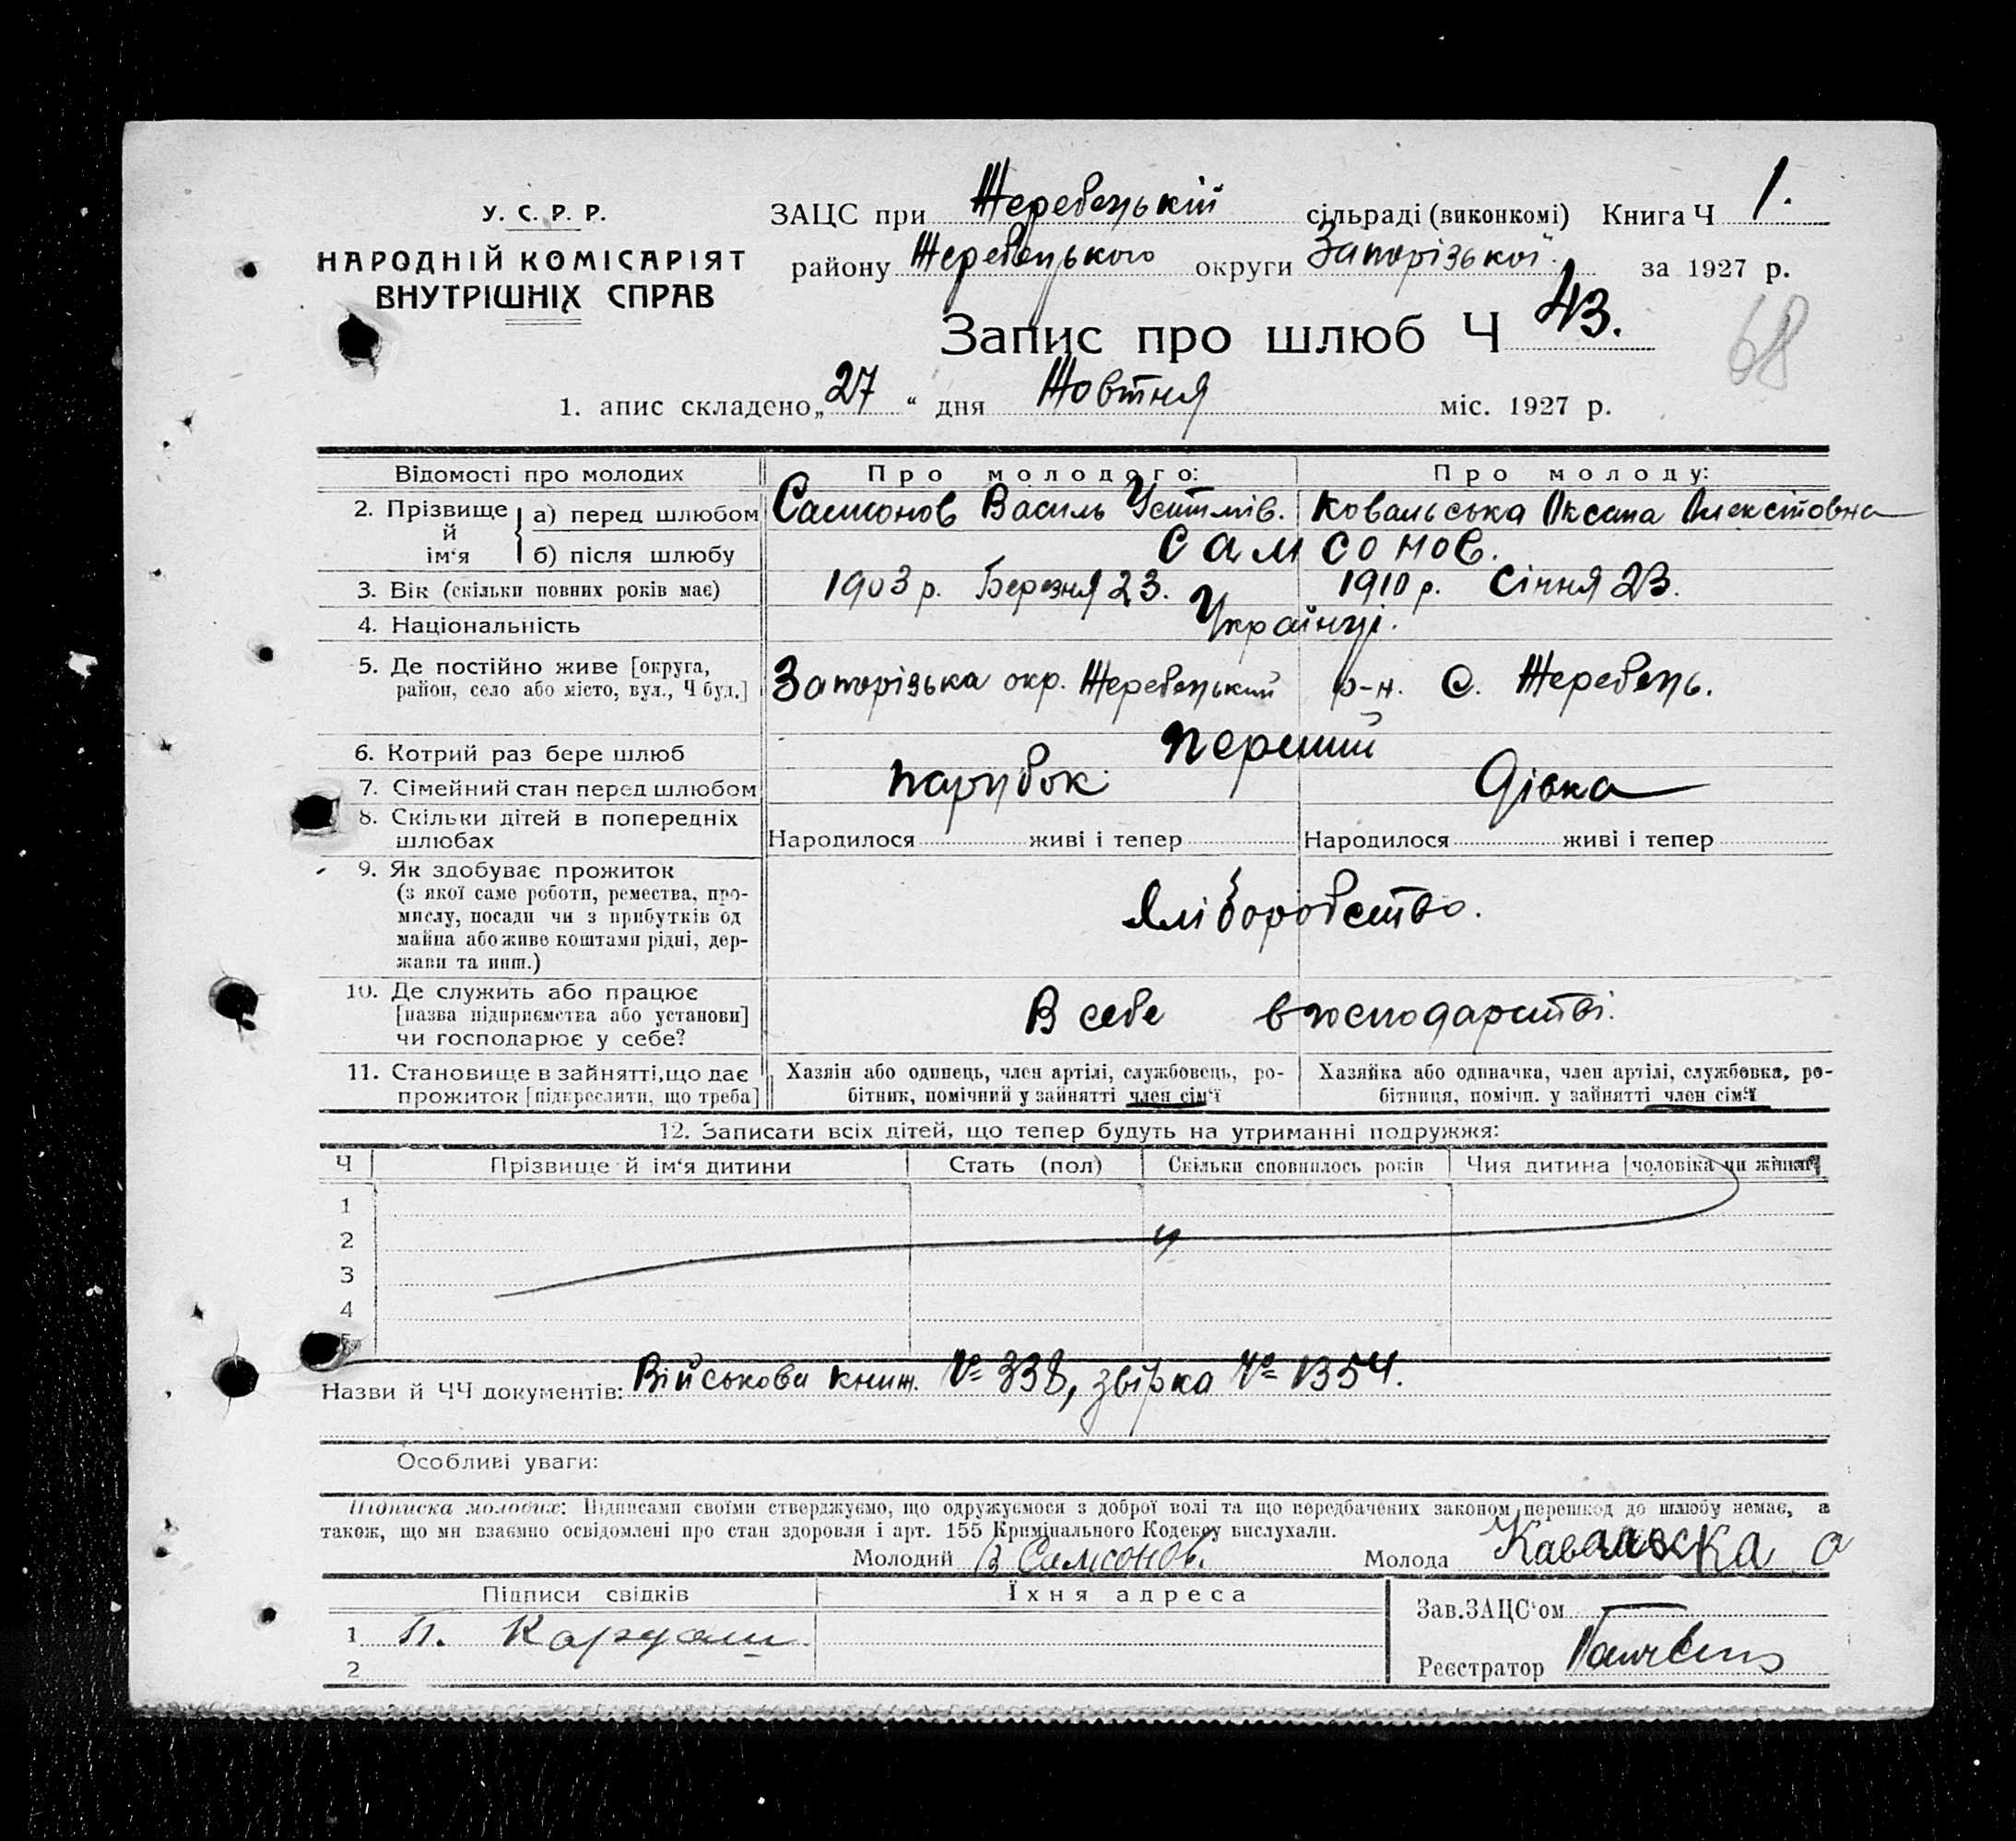 У. С. Р. Р.
НАРОДНІЙ КОМІСАРІЯТ
ВНУТРІШНІХ СПРАВ
ЗАЦС при Жеребецькій сільраді (виконкомі) Книга Ч 1.
району Жеребецького округи Запорізької за 1927 р.
Запис про шлюб Ч 43.
68
1. апис складено „27 “ дня Жовтня міс. 1927 р.
Відомості про молодих Про молодого: Про молоду:
2. Прізвище й ім‘я
а) перед шлюбом Самсонов Василь Ковальська Оксана
б) після шлюбу Самсонов.
3. Вік (скільки повних років має) 1903 р. Березня 23. 1910 р. Січня 23.
4. Національність Українці.
5. Де постійно живе [округа, Запорізька окр. Жеребецький р-н. С. Жеребець.
район, село або місто, вул., Ч буд.]
6. Котрий раз бере шлюб перший
7. Сімейний стан перед шлюбом парубок Дівка
8. Скільки дітей в попередніх
шлюбах Народилося живі і тепер Народилося живі і тепер
9. Як здобуває прожиток
(з якої саме роботи, ремества, про-
мислу, посади чи з прибутків од
майна або живе коштами рідні, дер-
жави та инш.)
10. Де служить або працює В себе в господарстві.
[назва підприємства або установи]
чи господарює у себе?
11. Становище в зайнятті, що дає Хазяін або одинець, член артілі, службовець, ро- Хазяйка або одиначка, член артілі, службовка, ро-
прожиток [підкреслити, що треба] бітник, помічний у зайнятті член сім‘ї бітниця, помічн. у зайнятті член сім‘ї
12. Записати всіх дітей, що тепер будуть на утриманні подружжя:
Ч Прізвище й ім‘я дитини Стать (пол) Скільки сповнилось років Чия дитина [чоловіка чи жінки]
1
2
3
4
5
Назви й ЧЧ документів: Військова книж. № 338, звірка № 1354.
Особливі уваги:
Підписка молодих: Підписами своїми стверджуємо, що одружуємося з доброї волі та що передбачених законом перешкод до шлюбу немає, а
також, що ми взаємно освідомлені про стан здоровля і арт. 155 Кримінального Кодексу вислухали.
Молодий В Самсонов. Молода Кавальска О
Підписи свідків Їхня адреса
Зав. ЗАЦС‘ом
1 П.
2
Реєстратор